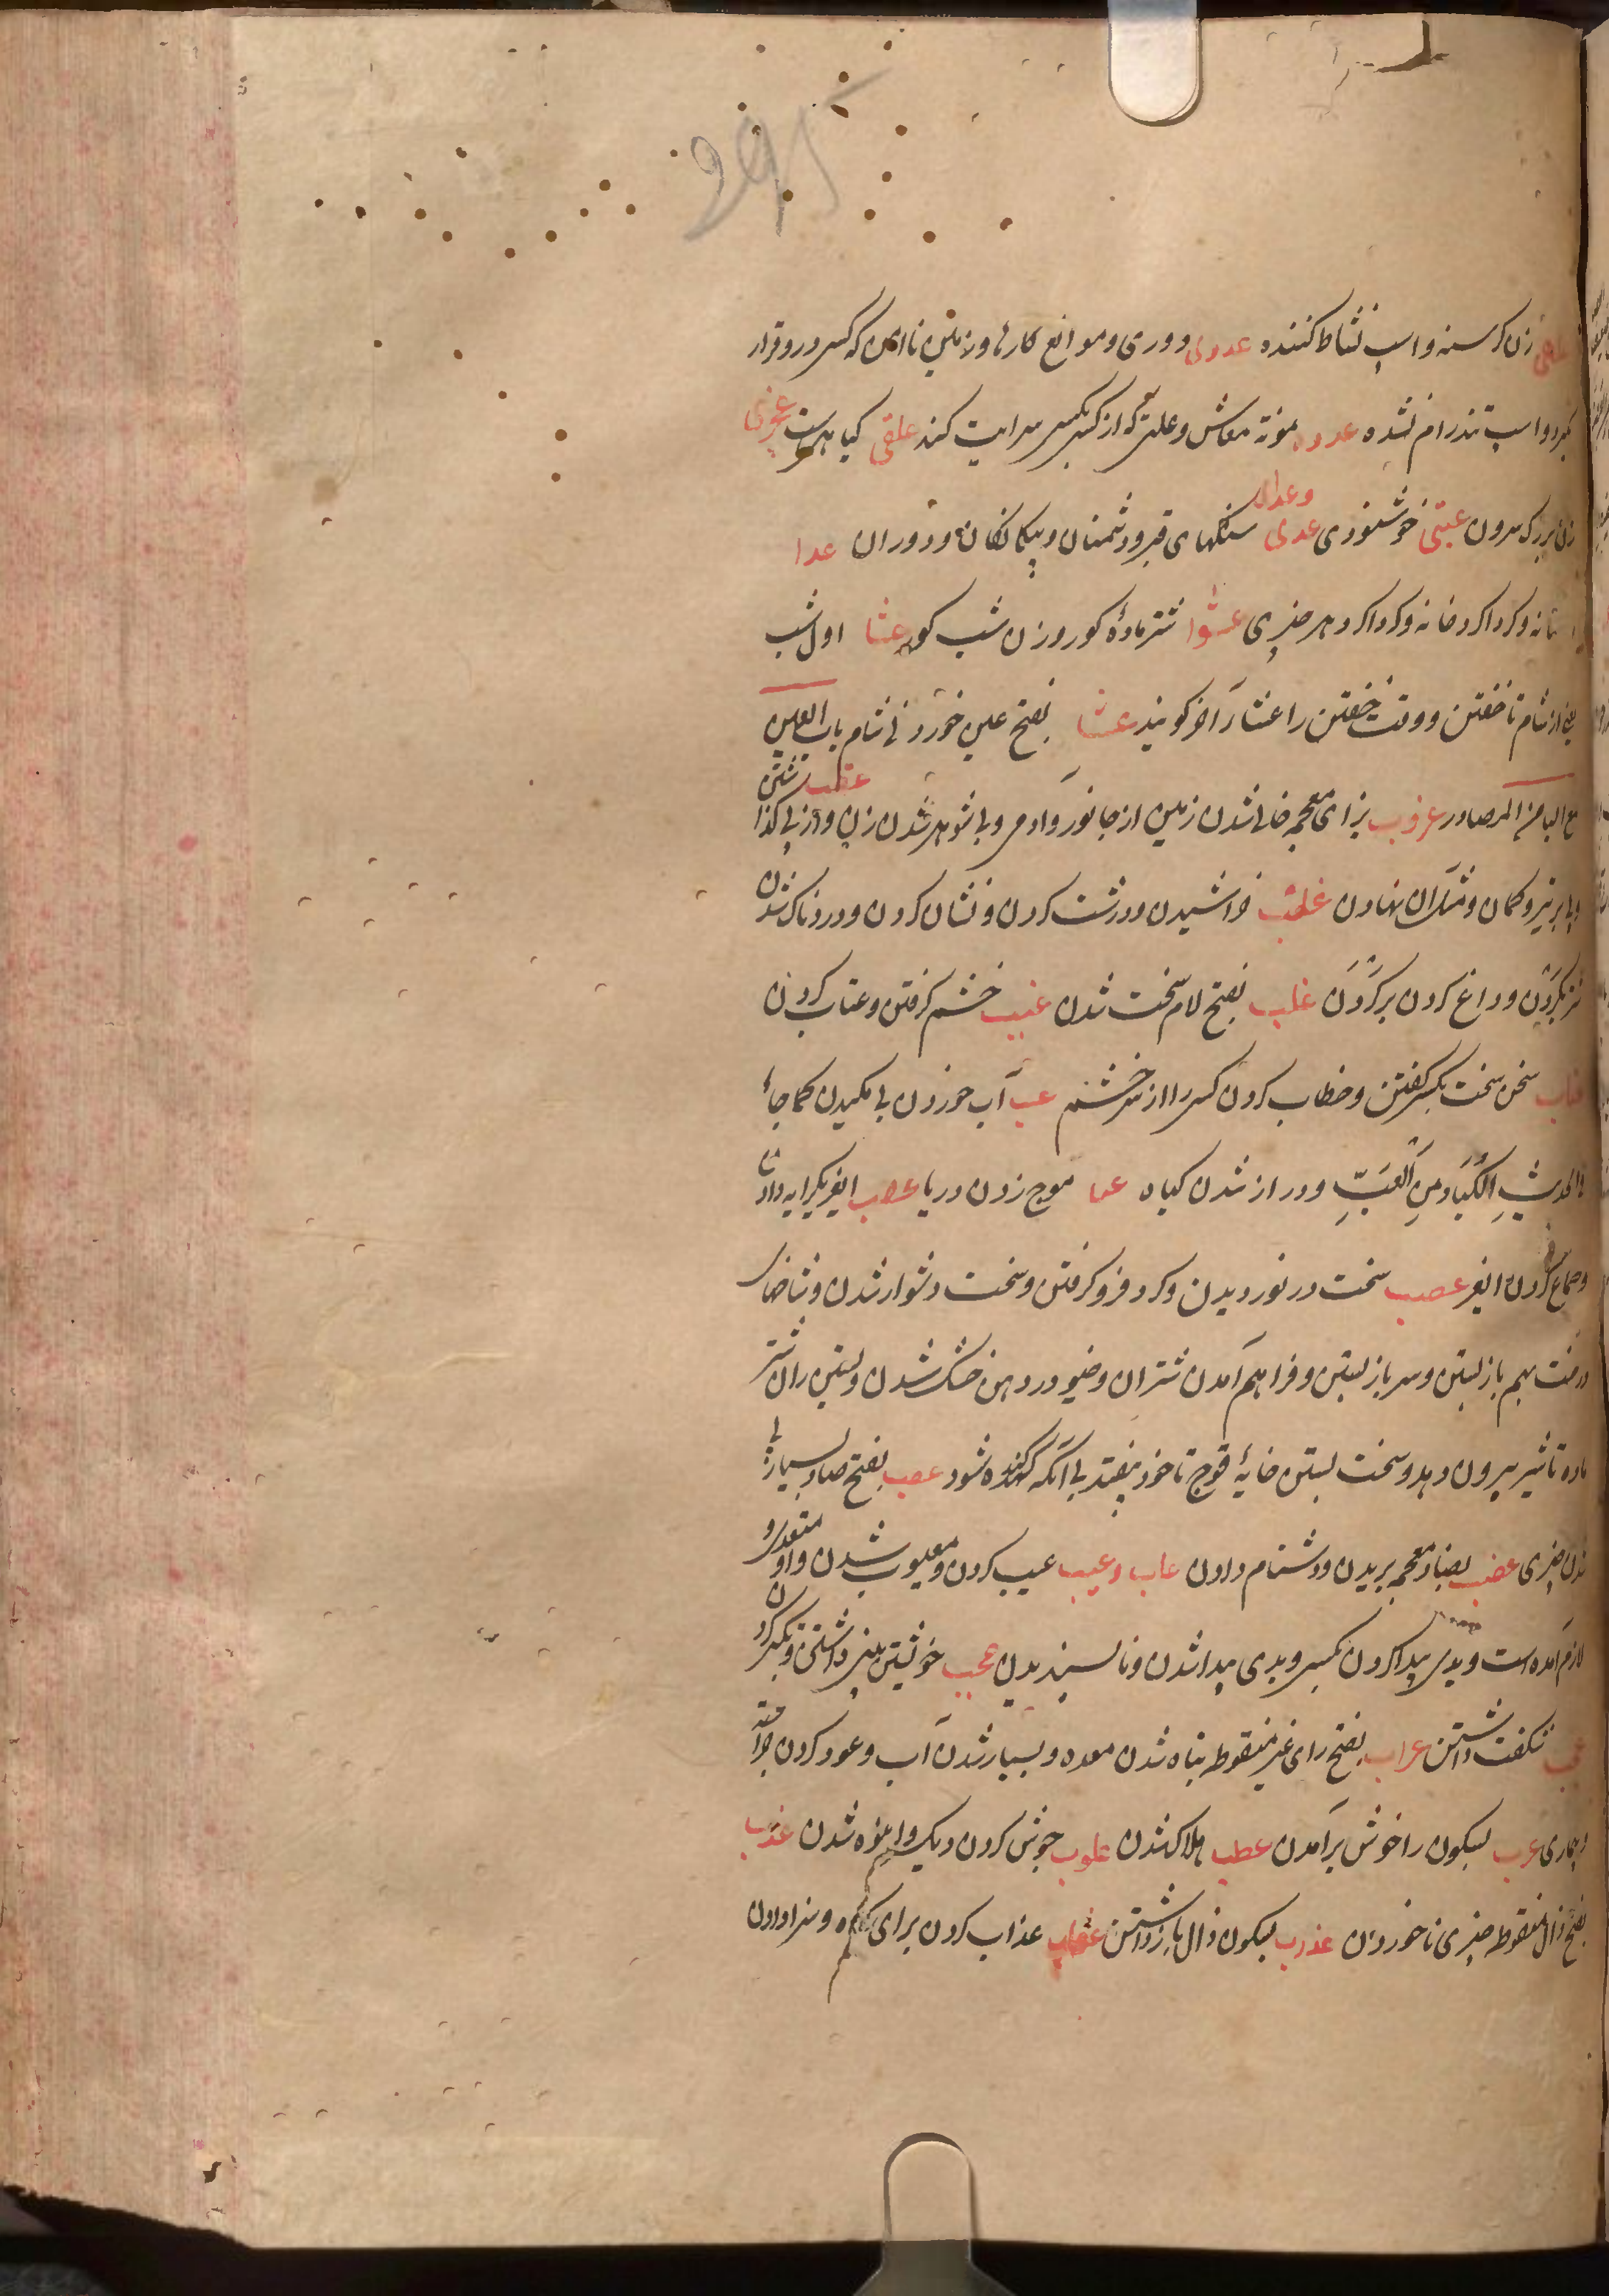 295
زن کرسنه و اسپ نشاط کننده عدوی دوری و موانع کارها و زمین ناامن که کسی درو قرار
کیرد و اسپ تند رام نشده عدوه مونة معاش و علتی که از کسی بکسی سرایت کند علقی کیاهیست عجزی
زن بزرک سرون عبتی خوشنودی عدی وعدا سنکهای قبر و دشمنان و بیکانکان و دوران عدا
کرداکرد خانه و کرداکرد هر چیزی عشوا شتر مادهٔ کور و زن شب کور عشا اول شب
یعنی از شام تا خفتن و وقت خفتن را عشا آخر کویند عشا بفتح عین خوردنی شام باب العین
مع البا من المصادر عزوب بزای معجمه خالی شدن زمین از جانور و آدمی و بی شوهر شدن زن و از پی کذا عقب شتن
و پی بر تیر و کمان و مثل آن نهادن علب خراشیدن و درشت کردن و نشان کردن و دردناک شدن
بر کردن و داغ کردن بر کردن علب بفتح لام سخت شدن عتب خشم کرفتن و عتاب کردن
عتاب سخن سخت بکسی کفتن و خطاب کردن کسی را از سر خشم عب آب خوردن بی مکیدن کما جاء
فی الحدیث الکباد من العب و دراز شدن کیاه عبا موج زدن دریا عسب ایغر بکرایه دادن
و جماع کردن ایغر عصب سخت در نوردیدن و کرد فرو کرفتن و سخت دشوار شدن و شاخهای
درخت بهم باز بستن و سر باز بستن و فراهم آمدن شتران و خیو در دهن خشک شدن و بستن ران شتر
ماده تا شیر بیرون دهد و سخت بستن خایهٔ قوچ تا خود بیفتد بی آنکه کنده شود عصب بفتح صاد بسیار پی
شدن چیزی عضب بضاد معجمه بریدن و دشنام دادن عاب وعیب عیب کردن و معیوب شدن و او متعدی و
لازم آمده است و بدی پیدا کردن بکسی و بدی پیدا شدن و ناپسندیدن عجب خویشتن بین داشتن و تکبر کردن
عجب شکفت داشتن عراب بفتح رای غیر منقوطه تباه شدن معده و بسیار شدن آب و عود کردن جراحت
و بیماری عرب بسکون را خوش برآمدن عطب هلاک شدن علوب جوش کردن دیک و انبوه شدن عذب
بفتح ذال منقوطه چیزی ناخوردن عذب بسکون ذال باز داشتن عقاب عذاب کردن برای کناه و سزا دادن